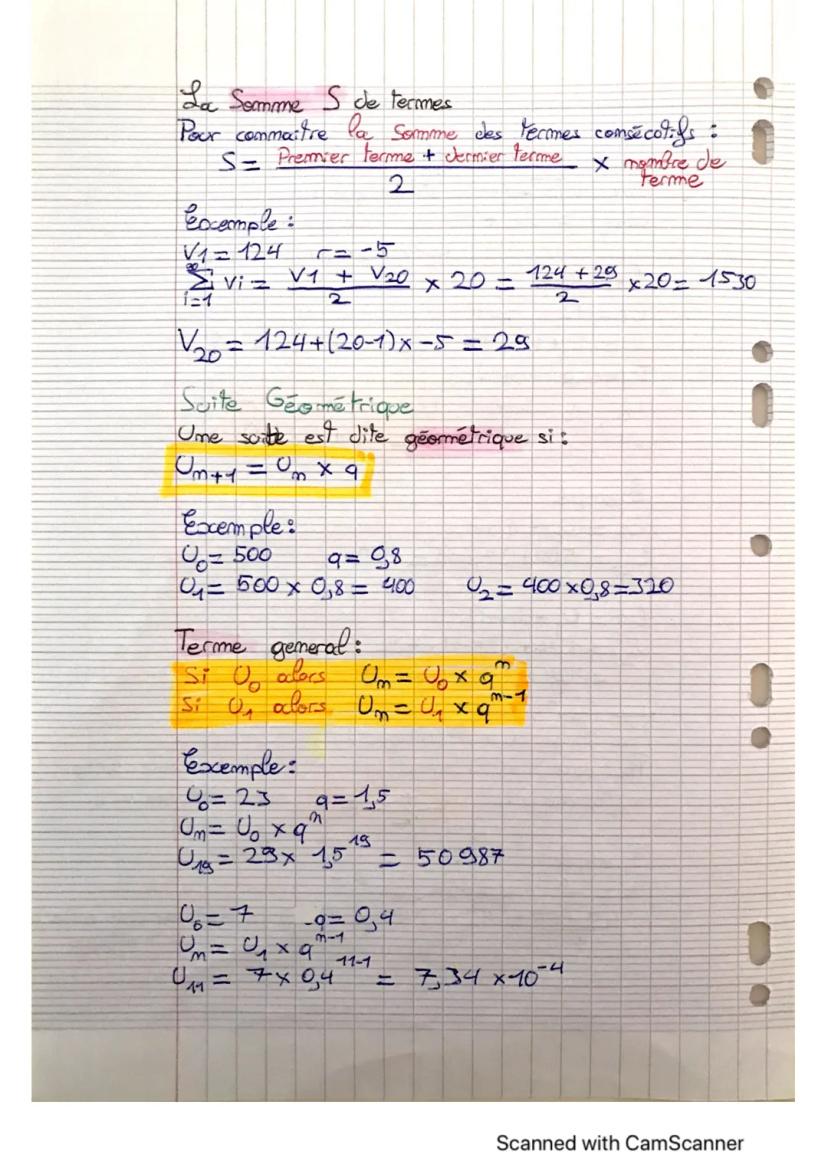 La Somme S de termes
Pour connaitre la Somme des termes consécotifs :
S = (Premier terme + dernier terme) / 2 × nombre de terme
Exemple :
V1 = 124 r = -5
∞ ∑ i=1 Vi = (V1 + V20) / 2 × 20 = (124 + 29) / 2 × 20 = 1530
V20 = 124+(20-1)× -5 = 29
Suite Géométrique
Une suite est dite géométrique si :
Un+1 = Un × q
Exemple :
U0 = 500 q = 0,8
U1 = 500 × 0,8 = 400 U2 = 400 × 0,8 = 320
Terme general :
Si U0 alors Un = U0 × q^n
Si U1 alors Un = U1 × q^n-1
Exemple :
U0 = 23 q = 1,5
Un = U0 × q^n
U19 = 23 × 1,5^19 = 50987
U0 = 7 q = 0,4
Un = U1 × q^n-1
U11 = 7 × 0,4^11-1 = 7,34 × 10^-4
Scanned with CamScanner